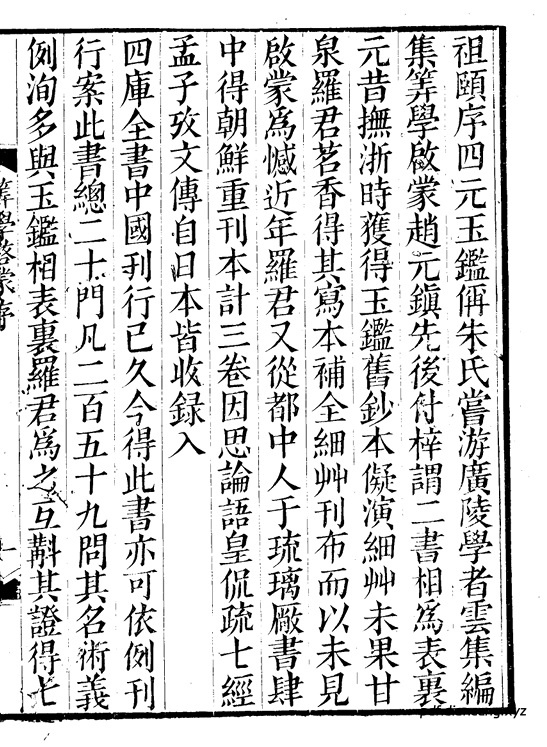 祖頤序四元玉鑑偁朱氏嘗游廣陵學者雲集編
集筭學啟蒙趙元鎮先後付梓謂二書相爲表裏
元昔撫浙時獲得玉鑑舊鈔本儗演細艸未果甘
泉羅君茗香得其寫本補全細艸刊布而以未見
啟蒙爲憾近年羅君又從都中人于琉璃厰書肆
中得朝鮮重刊本計三卷因思論語皇侃疏七經
孟子攷文傳自日本皆收録入
四庫全書中國刊行已久今得此書亦可依例刊
行案此書總二十門凡二百五十九問其名術義
例洵多與玉鑑相表裏羅君爲之互斠其證得七
筭學啓蒙序
一